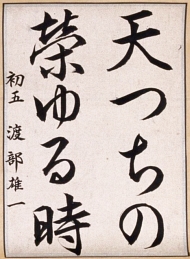 天つちの
榮ゆる時
初五 渡部雄一